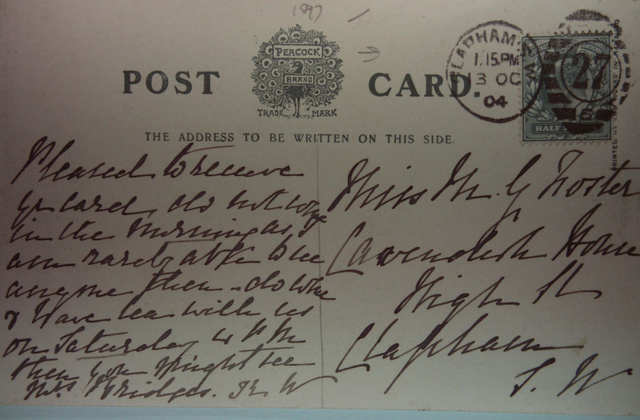 1897
POST CARD
PEACOCK
BRAND
TRADE MARK
THE ADDRESS TO BE WRITTEN ON THIS SIDE.
CLAPHAM
1.15 PM
13 OC
04
27
HALF
Pleased to receive
yr card, do not come
in the morning as I
am rarely able to see
anyone then - do come
& have tea with us
on Saturday 4 PM
then you might see
Mrs Bridges.
Miss M G Foster
Cavendish House
High St
Clapham
S. W